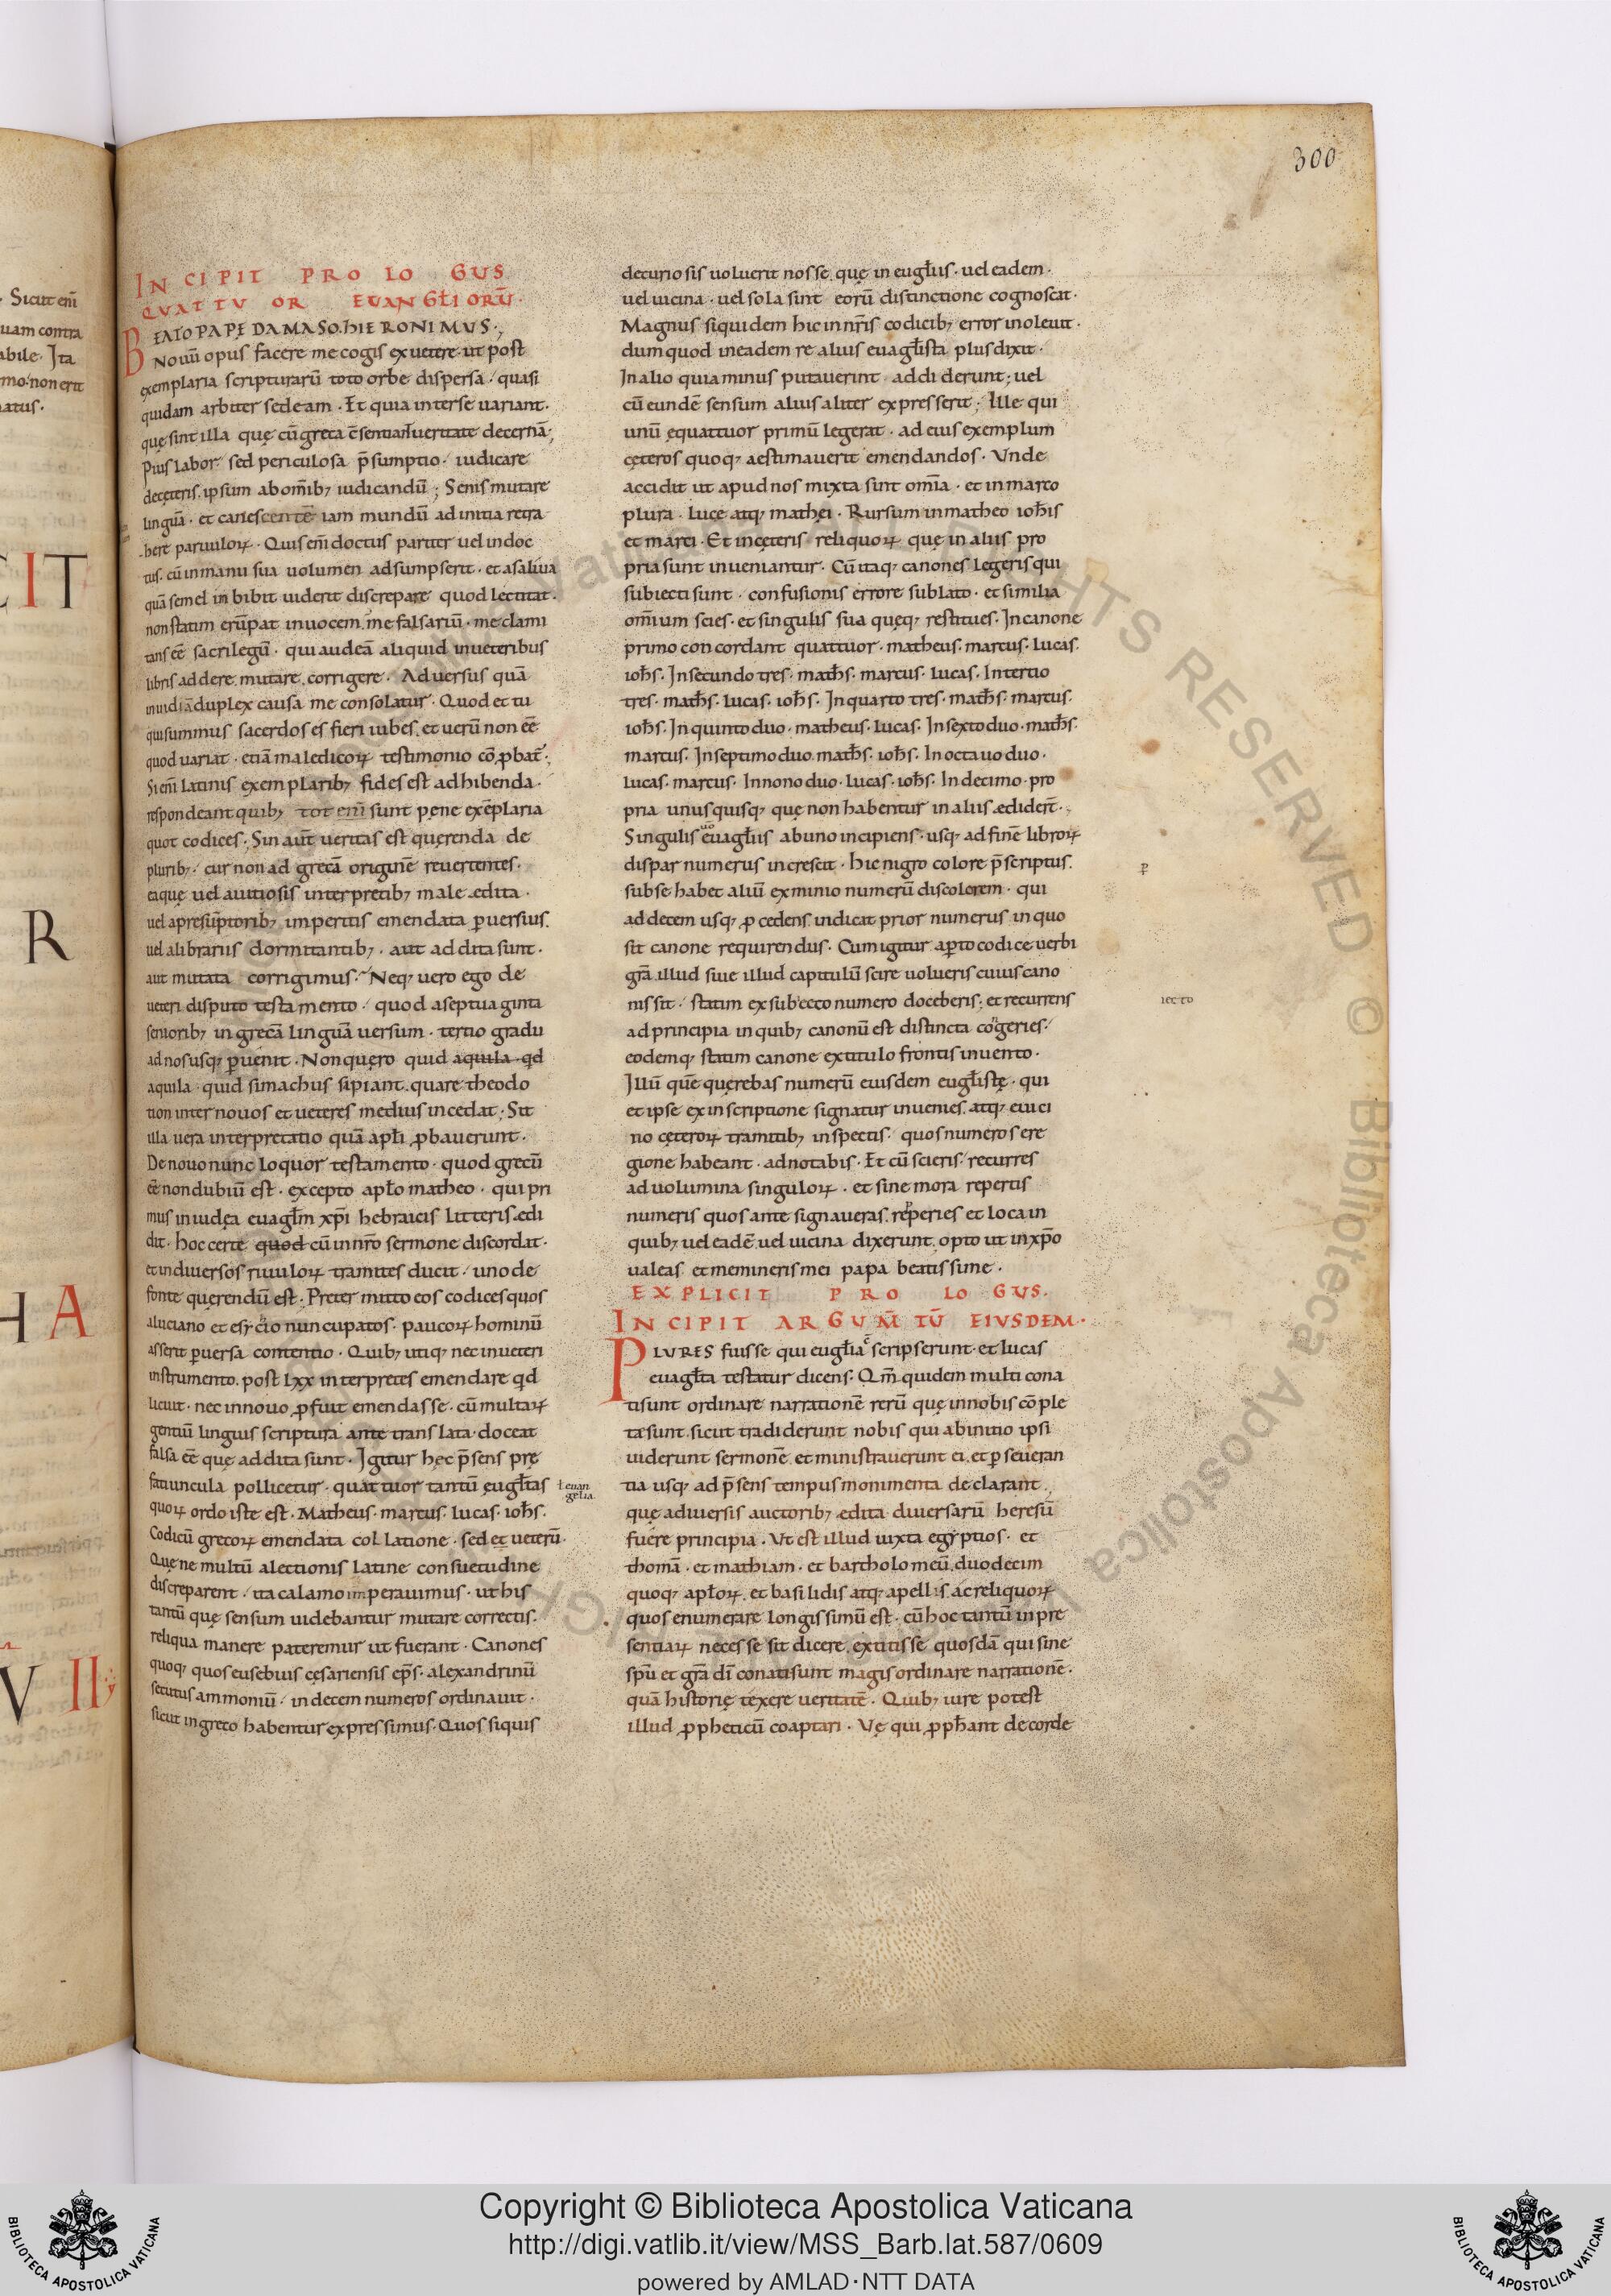 300
· Sicut eni̅
uam contra
abile · Ita
mo · non erit
atus ·
CIT
R
HA
VII
IN CIPIT PRO LO GUS
QVATTV OR EVANGL̅I ORU̅ ·
BEATO PAPĘ DAMASO · HIERONIMUS ·,
Nouu̅ opus facere me cogis ex uetere · ut post
exemplaria scripturaru̅ toto orbe dispersa · quasi
quidam arbiter sedeam · Et quia inter se uariant ·
quę sint illa quę cu̅ greca c̅sentian̅t ueritate decerna̅ ;
Pius labor · sed periculosa p̅sumptio · iudicare
de cęteris · ipsum ab om̅ib; iudicandu̅ ; Senis mutare
lingua̅ · et canescente̅ iam mundu̅ ad initia retra
here paruuloꝝ · Quis eni̅ doctus pariter uel indoc
tus · cu̅ in manu sua uolumen adsumpserit · et a saliua
qua̅ semel inbibit uiderit discrepare quod lectitat ·
non statim eru̅pat in uocem · me falsariu̅ · me clami
tans ee̅ sacrilegu̅ · qui audea̅ aliquid in ueteribus
libris addere · mutare · corrigere · Aduersus qua̅
inuidia̅ duplex causa me consolatur · Quod et tu
qui summus sacerdos es fieri iubes · et ueru̅ non ee̅
quod uariat · etia̅ maledicoꝝ testimonio co̅ꝓbat̅ ·,
Si eni̅ latinis exemplarib; fides est adhibenda ·
respondeant quib; tot eni̅ sunt pene exe̅plaria
quot codices · Sin aut̅ ueritas est querenda de
plurib; · cur non ad greca̅ origine̅ reuertentes ·
ea quę uel a uitiosis interpretib; male edita ·
uel a presu̅ptorib; imperitis emendata ꝑuersius ·
uel a librariis dormitantib; · aut addita sunt ·
aut mutata corrigimus · Neq; uero ego de
ueteri disputo testamento · quod a septuaginta
seniorib; in greca̅ lingua̅ uersum · tertio gradu
ad nos usq; ꝑuenit · Non quęro quid aquila qd
aquila · quid simachus sapiant · quare theodo
tion inter nouos et ueteres medius incedat ; Sit
illa uera interpretatio qua̅ apl̅i ꝓbauerunt ·
De nouo nunc loquor testamento · quod grecu̅
ee̅ non dubiu̅ est · excepto apl̅o matheo · qui pri
mus in iudęa euagl̅m xp̅i hebraicis litteris edi
dit · hoc certe quod cu̅ in nr̅o sermone discordat ·
et in diuersos riuuloꝝ tramites ducit · uno de
fonte querendu̅ est · Pretermitto eos codices quos
a luciano et esycio nuncupatos · paucoꝝ hominu̅
asserit ꝑuersa contentio · Quib; utiq; nec in ueteri
instrumento · post lxx interpretes emendare qd
licuit · nec in nouo ꝓfuit emendasse · cu̅ multaꝝ
gentiu̅ linguis scriptura ante translata · doceat
falsa ee̅ quę addita sunt · Igitur hęc p̅sens prę
fatiuncula pollicetur · quattuor tantu̅ eugl̅tas
ł euan
gelia
quoꝝ ordo iste est · Matheus · marcus · lucas · ioh̅s ·
Codicu̅ grecoꝝ emendata collatione · sed et ueteru̅ ·
Quę ne multu̅ a lectionis latine consuetudine
discreparent · ita calamo imperauimus · ut his
tantu̅ quę sensum uidebantur mutare correctis ·
reliqua manere pateremur ut fuerant · Canones
quoq; quos eusebius cęsariensis ep̅s · alexandrinu̅
secutus ammoniu̅ · in decem numeros ordinauit ·
sicut in greco habentur expressimus · Quos si quis
de curiosis uoluerit nosse · quę in eugl̅iis · uel eadem ·
uel uicina · uel sola sint eoru̅ distinctione cognoscat ·
Magnus siquidem hic in nr̅is codicib; error inoleuit ·
dum quod in eadem re alius euagl̅ista plus dixit ·
In alio quia minus putauerint addiderunt ; uel
cu̅ eunde̅ sensum alius aliter expresserit ; Ille qui
unu̅ e quattuor primu̅ legerat · ad eius exemplum
cęteros quoq; aestimauerit emendandos · Vnde
accidit ut apud nos mixta sint om̅ia · et in marco
plura · luce atq; mathei · Rursum in matheo ioh̅is
et marci · Et in cęteris reliquoꝝ quę in aliis pro
pria sunt inueniantur · Cu̅ itaq; canones legeris qui
subiecti sunt · confusionis errore sublato · et similia
om̅ium scies · et singulis sua quęq; restitues · In canone
primo concordant quattuor · matheus · marcus · lucas ·
ioh̅s · In secundo tres · math̅s · marcus · lucas · In tertio
tres · math̅s · lucas · ioh̅s · In quarto tres · math̅s · marcus ·
ioh̅s · In quinto duo · matheus · lucas · In sexto duo · math̅s ·
marcus · In septimo duo math̅s · ioh̅s · In octauo duo ·
lucas · marcus · In nono duo · lucas · ioh̅s · In decimo · pro
pria unusquisq; quę non habentur in aliis edider̅t ·,
Singulis uo euagl̅iis ab uno incipiens · usq; ad fine̅ libroꝝ
dispar numerus increscit · hic nigro colore p̅scriptus ·
sub se habet aliu̅ ex minio numeru̅ discolorem · qui
ad decem usq; ꝓcedens indicat prior numerus in quo
sit canone requirendus · Cum igitur aꝑto codice uerbi
gr̅a illud siue illud capitulu̅ scire uolueris cuius cano
nis sit · statim ex subecto numero doceberis ; et recurrens
iecto
ad principia in quib; canonu̅ est distincta congeries ·
eodemq; statim canone ex titulo frontis inuento ·
Illu̅ que̅ quęrebas numeru̅ eiusdem eugl̅istę · qui
et ipse ex inscriptione signatur inuenies · atq; e uici
no cęteroꝝ tramitib; inspectis · quos numeros e re
gione habeant · adnotabis · Et cu̅ scieris · recurres
ad uolumina singuloꝝ · et sine mora repertis
numeris quos ante signaueras reperies et loca in
quib; uel eade̅ uel uicina dixerunt · opto ut in xp̅o
ualeas et memineris mei papa beatissime ·
EXPLICIT PRO LO GUS ·
INCIPIT ARGUM̅TU̅ EIVSDEM ·
PLVRES fuisse qui eugl̅ia scripserunt · et lucas
euagl̅ta testatur dicens · Qm̅ quidem multi cona
ti sunt ordinare narratione̅ reru̅ quę in nobis co̅ple
ta sunt · sicut tradiderunt nobis qui ab initio ipsi
uiderunt sermone̅ et ministrauerunt ei · et ꝑseueran
tia usq; ad p̅sens tempus monimenta declarant ·,
quę a diuersis auctorib; edita diuersaru̅ heresu̅
fuere principia · Vt est illud iuxta egyptios · et
thoma̅ · et mathiam · et bartholomeu̅ · duodecim
quoq; apl̅oꝝ · et basilidis atq; apellis · ac reliquoꝝ
quos enumerare longissimu̅ est · cu̅ hoc tantu̅ in pre
sentiaꝝ necesse sit dicere · extitisse quosda̅ qui sine
sp̅u et gr̅a di̅ conati sunt magis ordinare narratione̅ ·
qua̅ historię texere ueritate̅ · Quib; iure potest
illud ꝓpheticu̅ coaptari · Vę qui ꝓph̅ant de corde
Copyright © Biblioteca Apostolica Vaticana
http://digi.vatlib.it/view/MSS_Barb.lat.587/0609
powered by AMLAD·NTT DATA
BIBLIOTECA APOSTOLICA VATICANA
BIBLIOTECA APOSTOLICA VATICANA